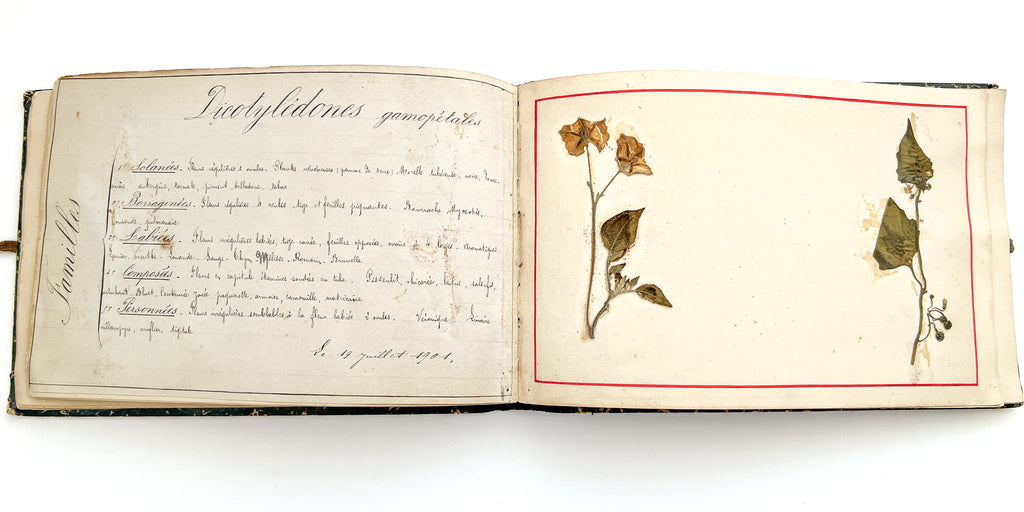 Dicotylédones gamopétales
Familles
1° Solanées. Fleurs régulières 2 ovules. Plantes vénéneuses (pomme de terre) Morelle tubéreuse, noire, Douce-
amère, aubergine, tomate, piment, belladone, tabac
2° Borraginées. Fleurs régulières 4 ovules tige et feuilles piquantes. Bourrache Myosotis,
consoude, pulmonaire
3° Labiées. Fleurs irrégulières labiées, tige carrée, feuilles opposées, ovaire à 4 loges. Aromatiques
menthe. lavande. Sauge. Thym Mélisse. Romarin. Brunelle
4° Composées. Fleurs en capitule étamines soudées en tube. Pissenlit, chicorée, laitue, salsifis,
Bluet. Centaurée jacée pâquerette, armoise, camomille, matricaire
5° Personnées. Fleurs irrégulières semblables à la fleur labiée 2 ovules. Véronique. Linaire
mélampyre, muflier, digitale
Le 19 juillet 1901.